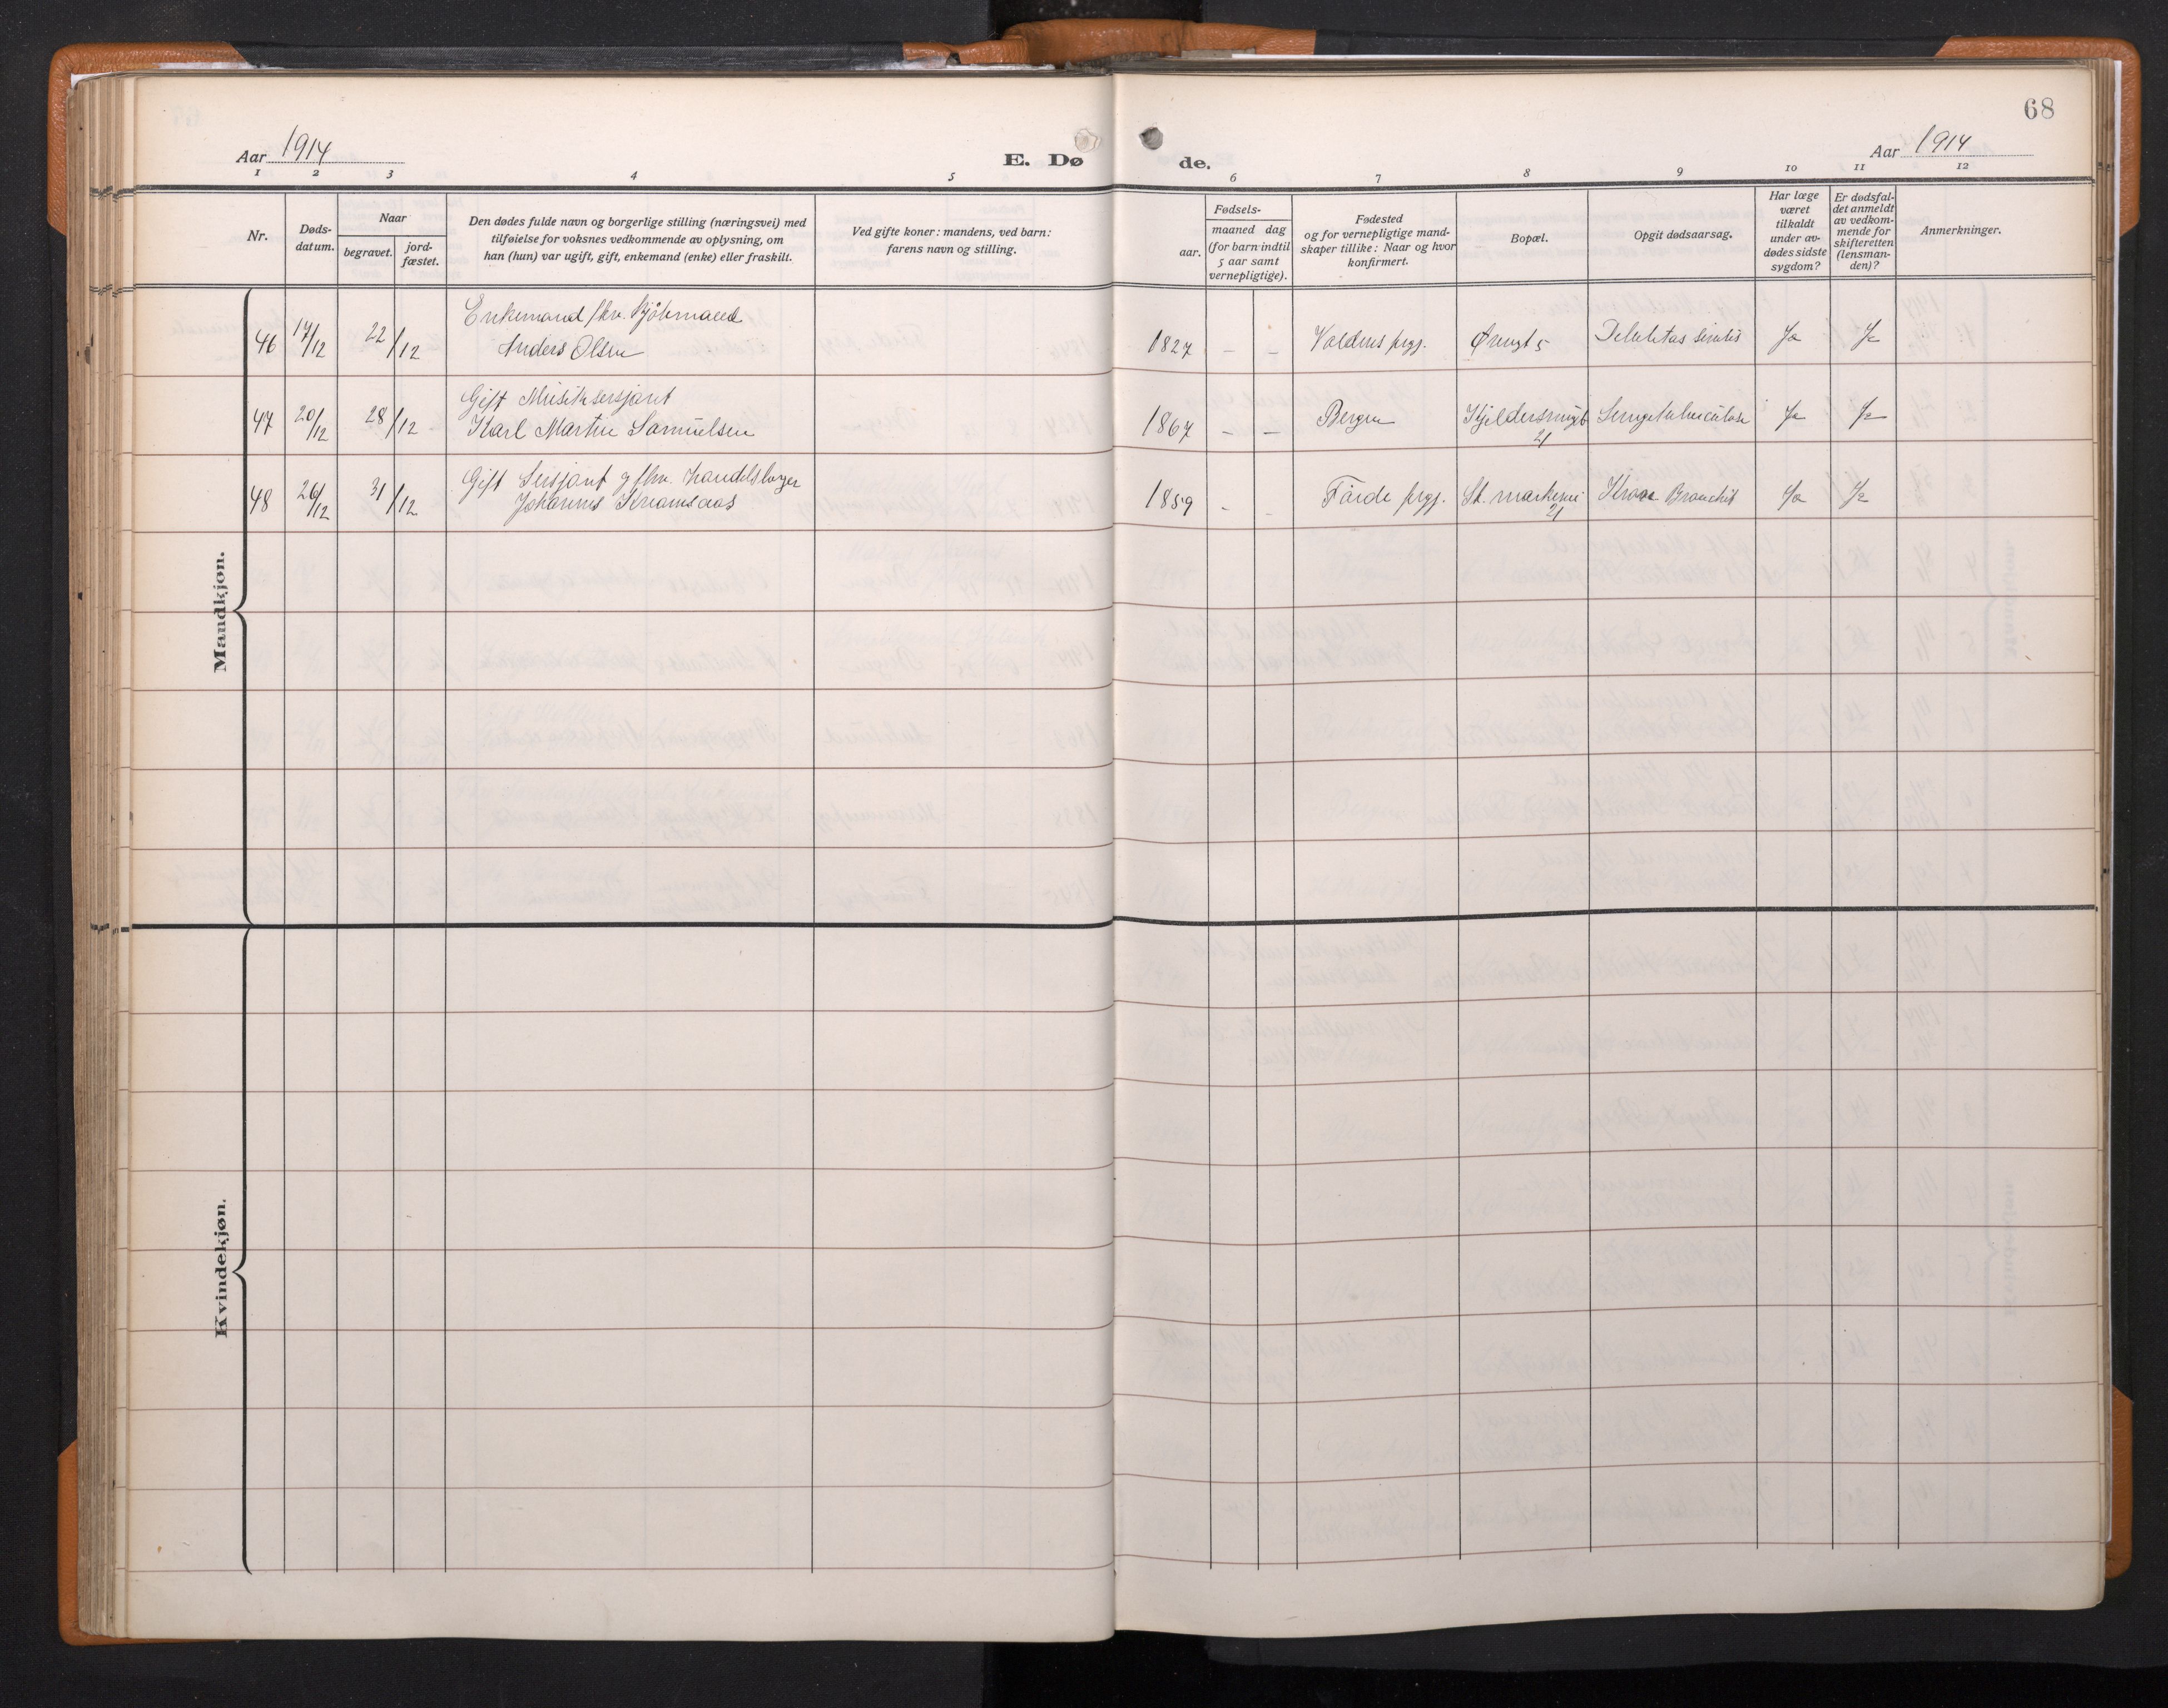 68
Aar 1914
E. Dø
de.
Aar 1914
1 2 3 4 5 6 7 8 9 10 11 12
Nr.
Døds-
datum.
Naar
begravet.
jord-
fæstet.
Den dødes fulde navn og borgerlige stilling (næringsvei) med
tilføielse for voksnes vedkommende av oplysning, om
han (hun) var ugift, gift, enkemand (enke) eller fraskilt.
Ved gifte koner: mandens, ved barn:
farens navn og stilling.
Fødsels-
aar.
maaned dag
(for barn indtil
5 aar samt
vernepligtige).
Fødested
og for vernepligtige mand-
skaper tillike: Naar og hvor
konfirmert.
Bopæl.
Opgit dødsaarsag.
Har læge
været
tilkaldt
under av-
dødes sidste
sygdom?
Er dødsfal-
det anmeldt
av vedkom-
mende for
skifteretten
(lensman-
den)?
Anmerkninger.
Mandkjøn.
Enkemand fhv. Kjøbmand
46 14/12 22/12 Anders Olsen 1827 – – Voldens prgj. Øvregt 5 Debilitas senilis Ja Ja
Gift Musiksersjant
47 20/12 28/12 Karl Martin Samuelsen 1867 – – Bergen Kjeldersmugt Lungetuberculose Ja Ja
21
Gift Sersjant og fhv. Handelsborger
48 26/12 31/12 Johannes Kvamsaas 1859 - - Førde prgj. St. markevei Kron Bronchit Ja Ja
21
Kvindekjøn.